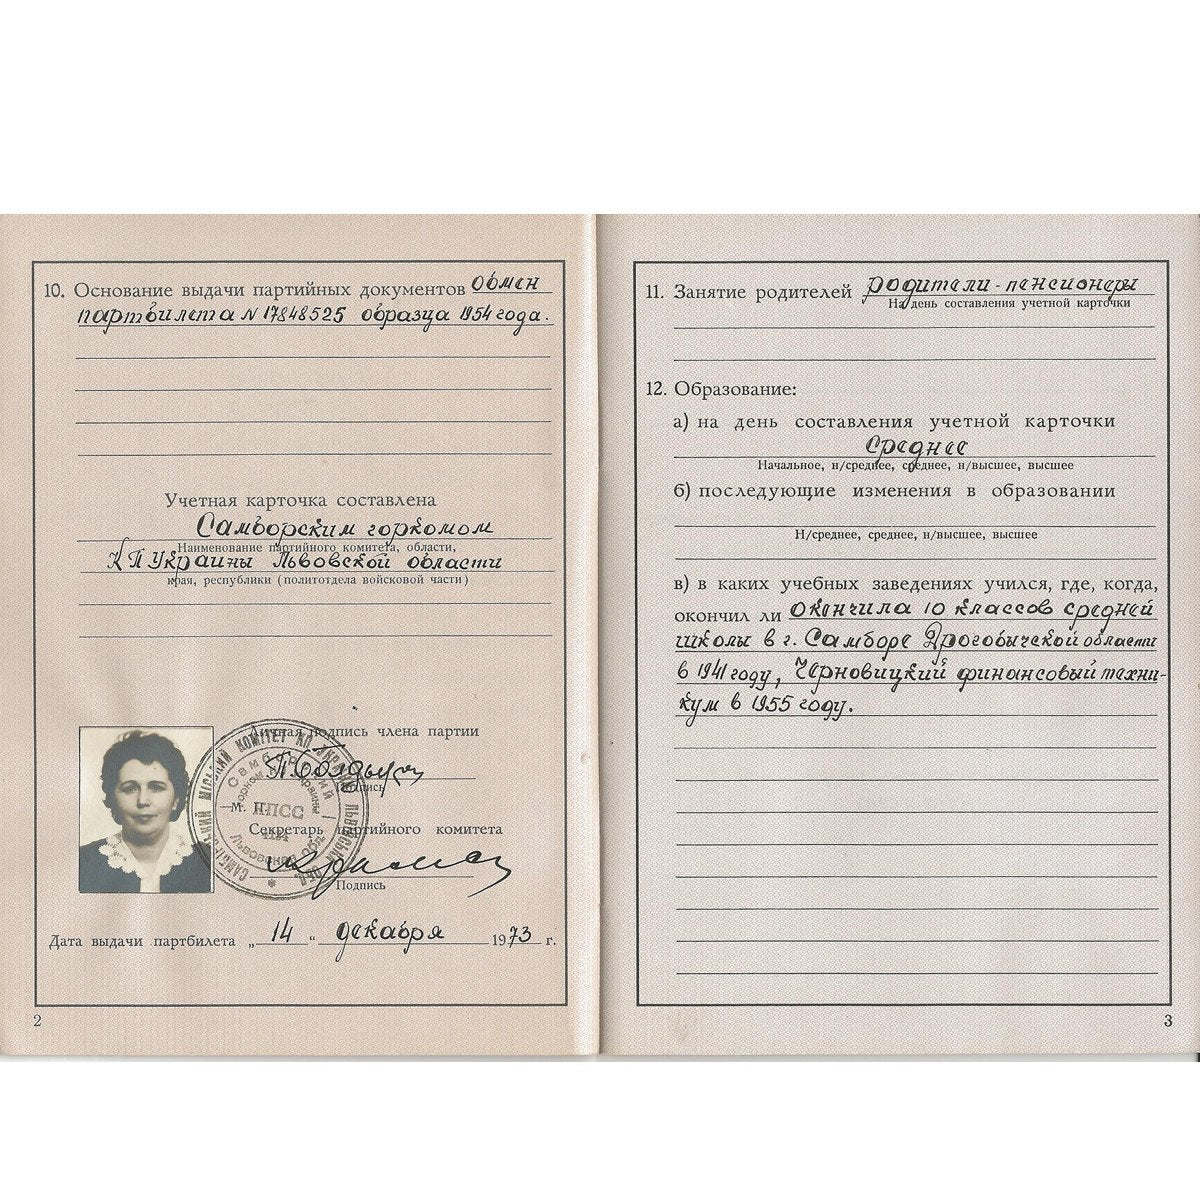 10. Основание выдачи партийных документов Обмен
партбилета N 17848525 образца 1954 года.
Учетная карточка составлена
Самборским горкомом
Наименование партийного комитета, области,
КП Украины Львовской области
края, республики (политотдела войсковой части)
Личная подпись члена партии
Подпись
М. П.
САМБІРСЬКИЙ МІСЬКИЙ КОМІТЕТ КП УКРАЇНИ ЛЬВІВСЬКОЇ ОБЛ.
Самборский горком КП Украины Львовской обл.
КПСС
Секретарь партийного комитета
Подпись
Дата выдачи партбилета „ 14 “ декабря 1973 г.
2
11. Занятие родителей родители-пенсионеры
На день составления учетной карточки
12. Образование:
а) на день составления учетной карточки
среднее
Начальное, н/среднее, среднее, н/высшее, высшее
б) последующие изменения в образовании
Н/среднее, среднее, н/высшее, высшее
в) в каких учебных заведениях учился, где, когда,
окончил ли окончила 10 классов средней
школы в г. Самборе Дрогобычской области
в 1941 году, Черновицкий финансовый техни-
кум в 1955 году.
3